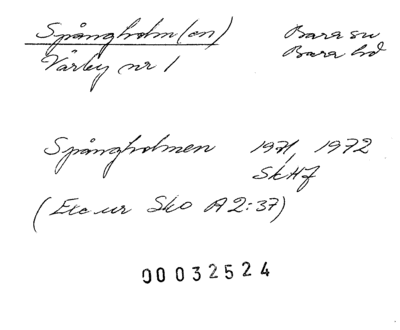 Spångholm(en) Bara sn
Värby nr 1 Bara hd
Spångholmen 1971, 1972
SkHf
(Exc ur Sko A2:37)
00032524